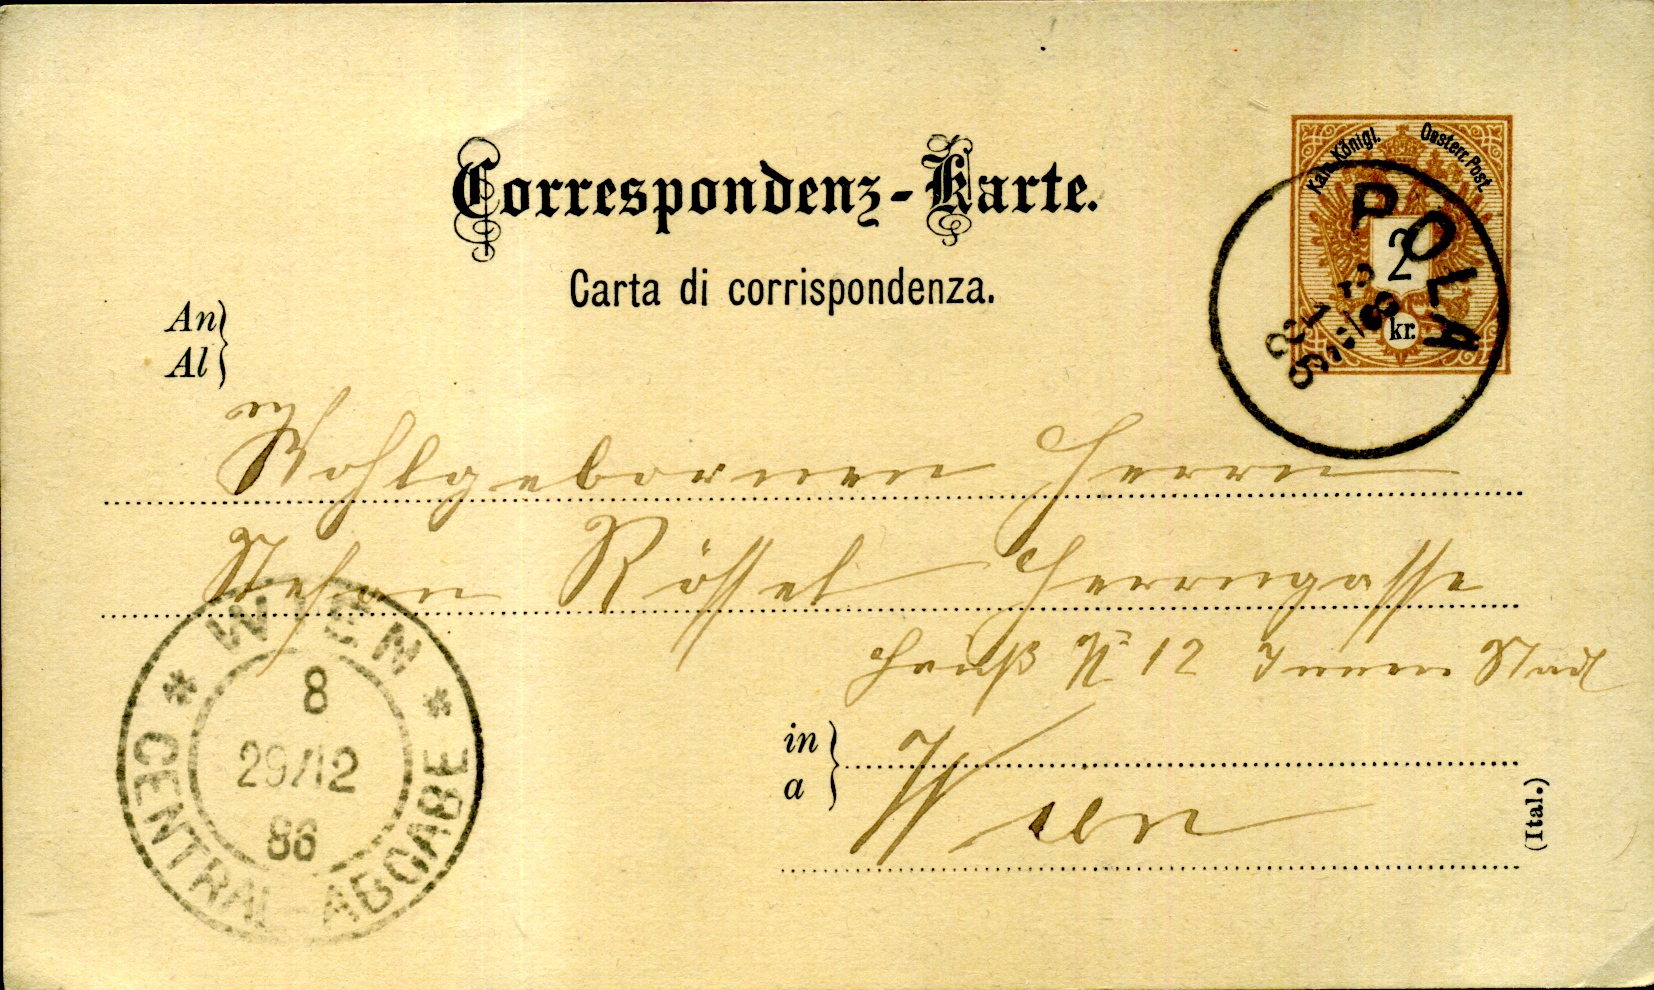 Correspondenz-Karte.
Carta di corrispondenza.
Kais. Königl. Oesterr. Post.
2
kr.
POLA
An
Al
Wohlgebornen Herrn
Stefan Rössel Herrengasse
Hauß № 12 Innere Stadt
in
a
Wien
(Ital.)
* WIEN *
8
29/12
86
CENTRAL-ABGABE